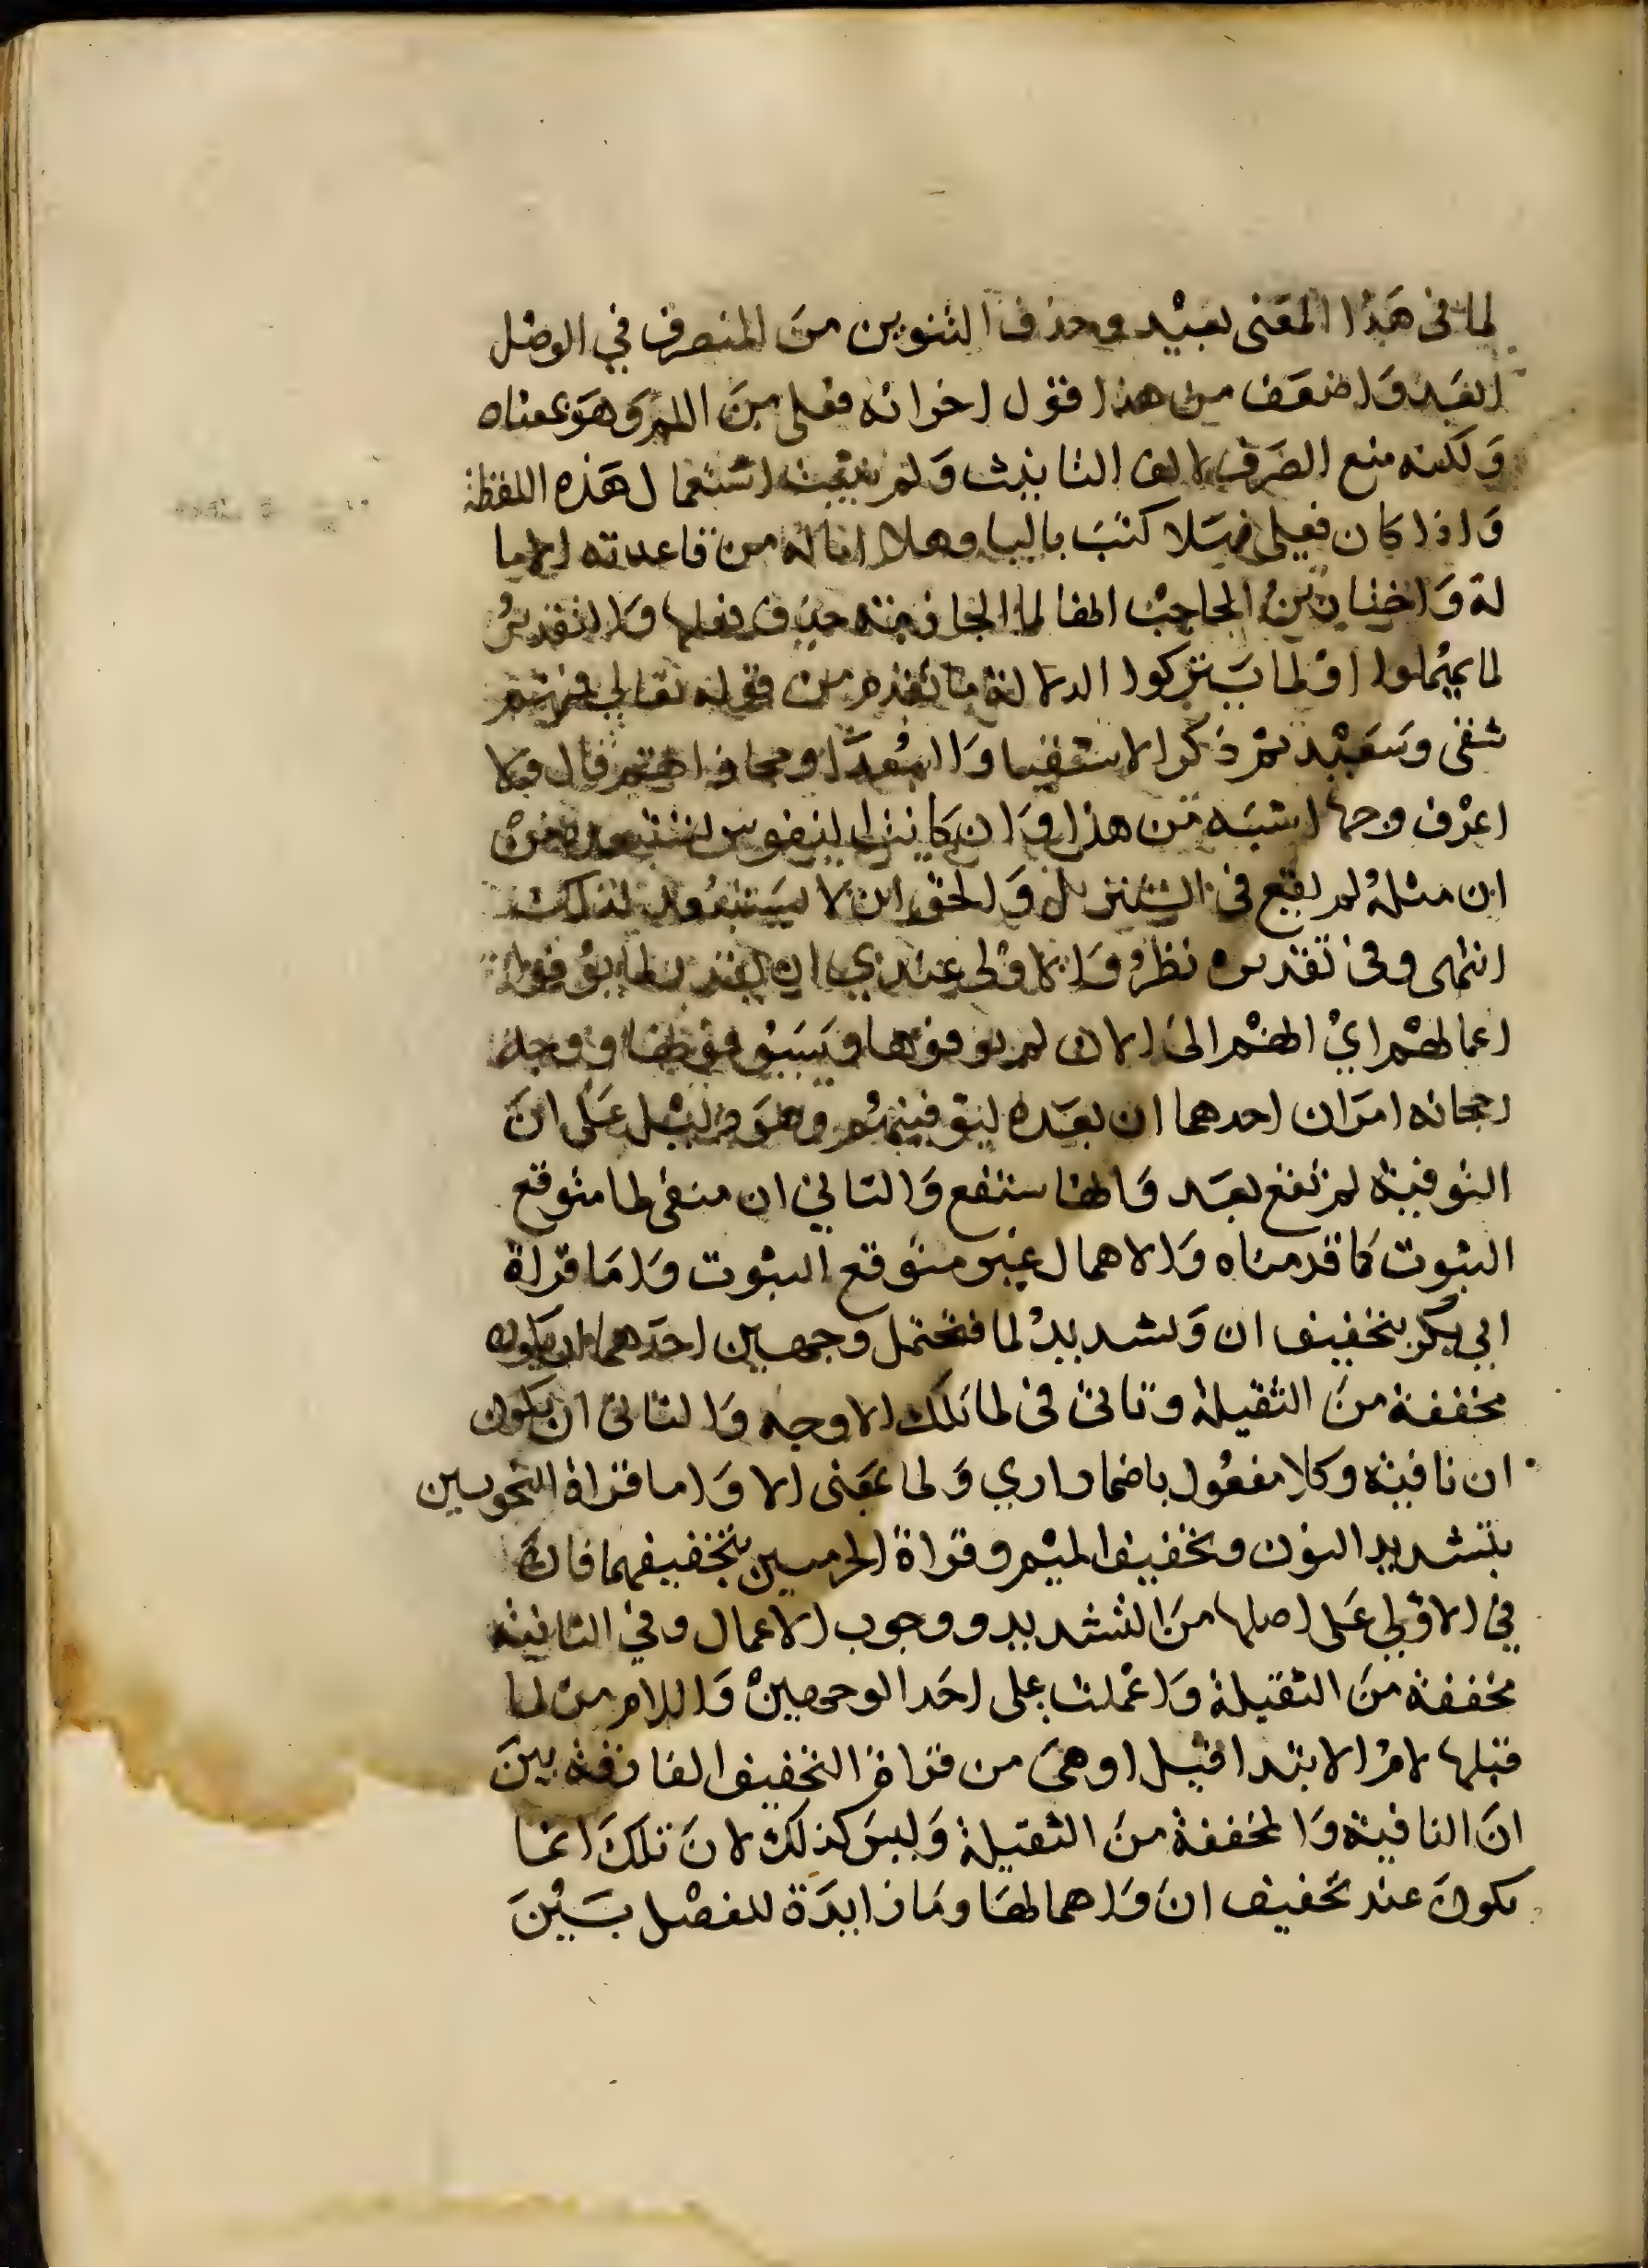 لما فى هَذا المعَنى بعيْد وحذف التنوين منَ المنصرف في الوصْل
ابعَد وَاضعَف من هذا قول اخر انه فعلى منَ اللمم وَهوَ بمعناه
وَلكنه منع الصَرف لالف التانيث وَلم يثبت استعمال هَذه اللفظة
وَاذا كان فعلى فهَلا كتبَ باليا وهلا اماله من قاعدته الاما
لة وَاختار ابنُ الحاجبْ انها لما الجازمة حذف فعلها وَالتقديرُ
لما يهملوا اوْ لما يَتركوا الدلالة ما تقدم من قوله تعالى فمنهم
شقى وَسَعيْد ثمْ ذكر الاشقيا وَالسُعَدَا ومجازاتهم قال وَلا
اعرْف وجها اشبَه منْ هذا وَان كانت النفوس تستبعده منْ
ان مثلهُ لم يقع فى التنزيل وَالحق ان لا يسَتبعُد لذلك
انتهى وفى تقديره نظرُ وَالاوْلى عندي ان يقدر لما يوُفوا
اعمالهمْ ايْ انهمْ الىَ الان لم يوفوها وسَيوفونها ووجه
رجحانه امرَان احدهما ان بعدَه ليوَفينهُم وهوَ دليْل عَلى انَ
التوفية لمْ تقع بعَد وَانها ستقع وَالثاني ان منفى لما متوقع
الثبوت كما قدمناه وَالاهمال غير متوَقع الثبوت وَامَا قراة
ابي بكر بتخفيف ان وَتشديدْ لما فتحتمل وجهين احدَهما ان تكون
مخففة منَ الثقيلة وتاتى فى لما تلك الاوجه وَالثانى ان تكون
ان نافية وكلا مفعُول باضمار اري وَلما بمعَنى الا وَاما قراة النحويين
بتشديد النون وتخفيف الميْم وقراة الحرميين بتخفيفهما فان
في الاوْلى عَلى اصلها منَ التشديد ووجوب الاعمال وفي الثانية
مخففة منَ الثقيلة وَاعْملت على احَد الوجهينْ وَاللام من لما
فيها لامْ الابتدا قيل اوهىَ من قراة التخفيف الفارقة بينَ
انَ النافية وَالمخففة منَ الثقيلة وَليسَ كذلك لانَ تلكَ انما
تكونَ عند تخفيف انَ وَاهمالهَا ومَا زايدَة للفصْل بَيْنَ